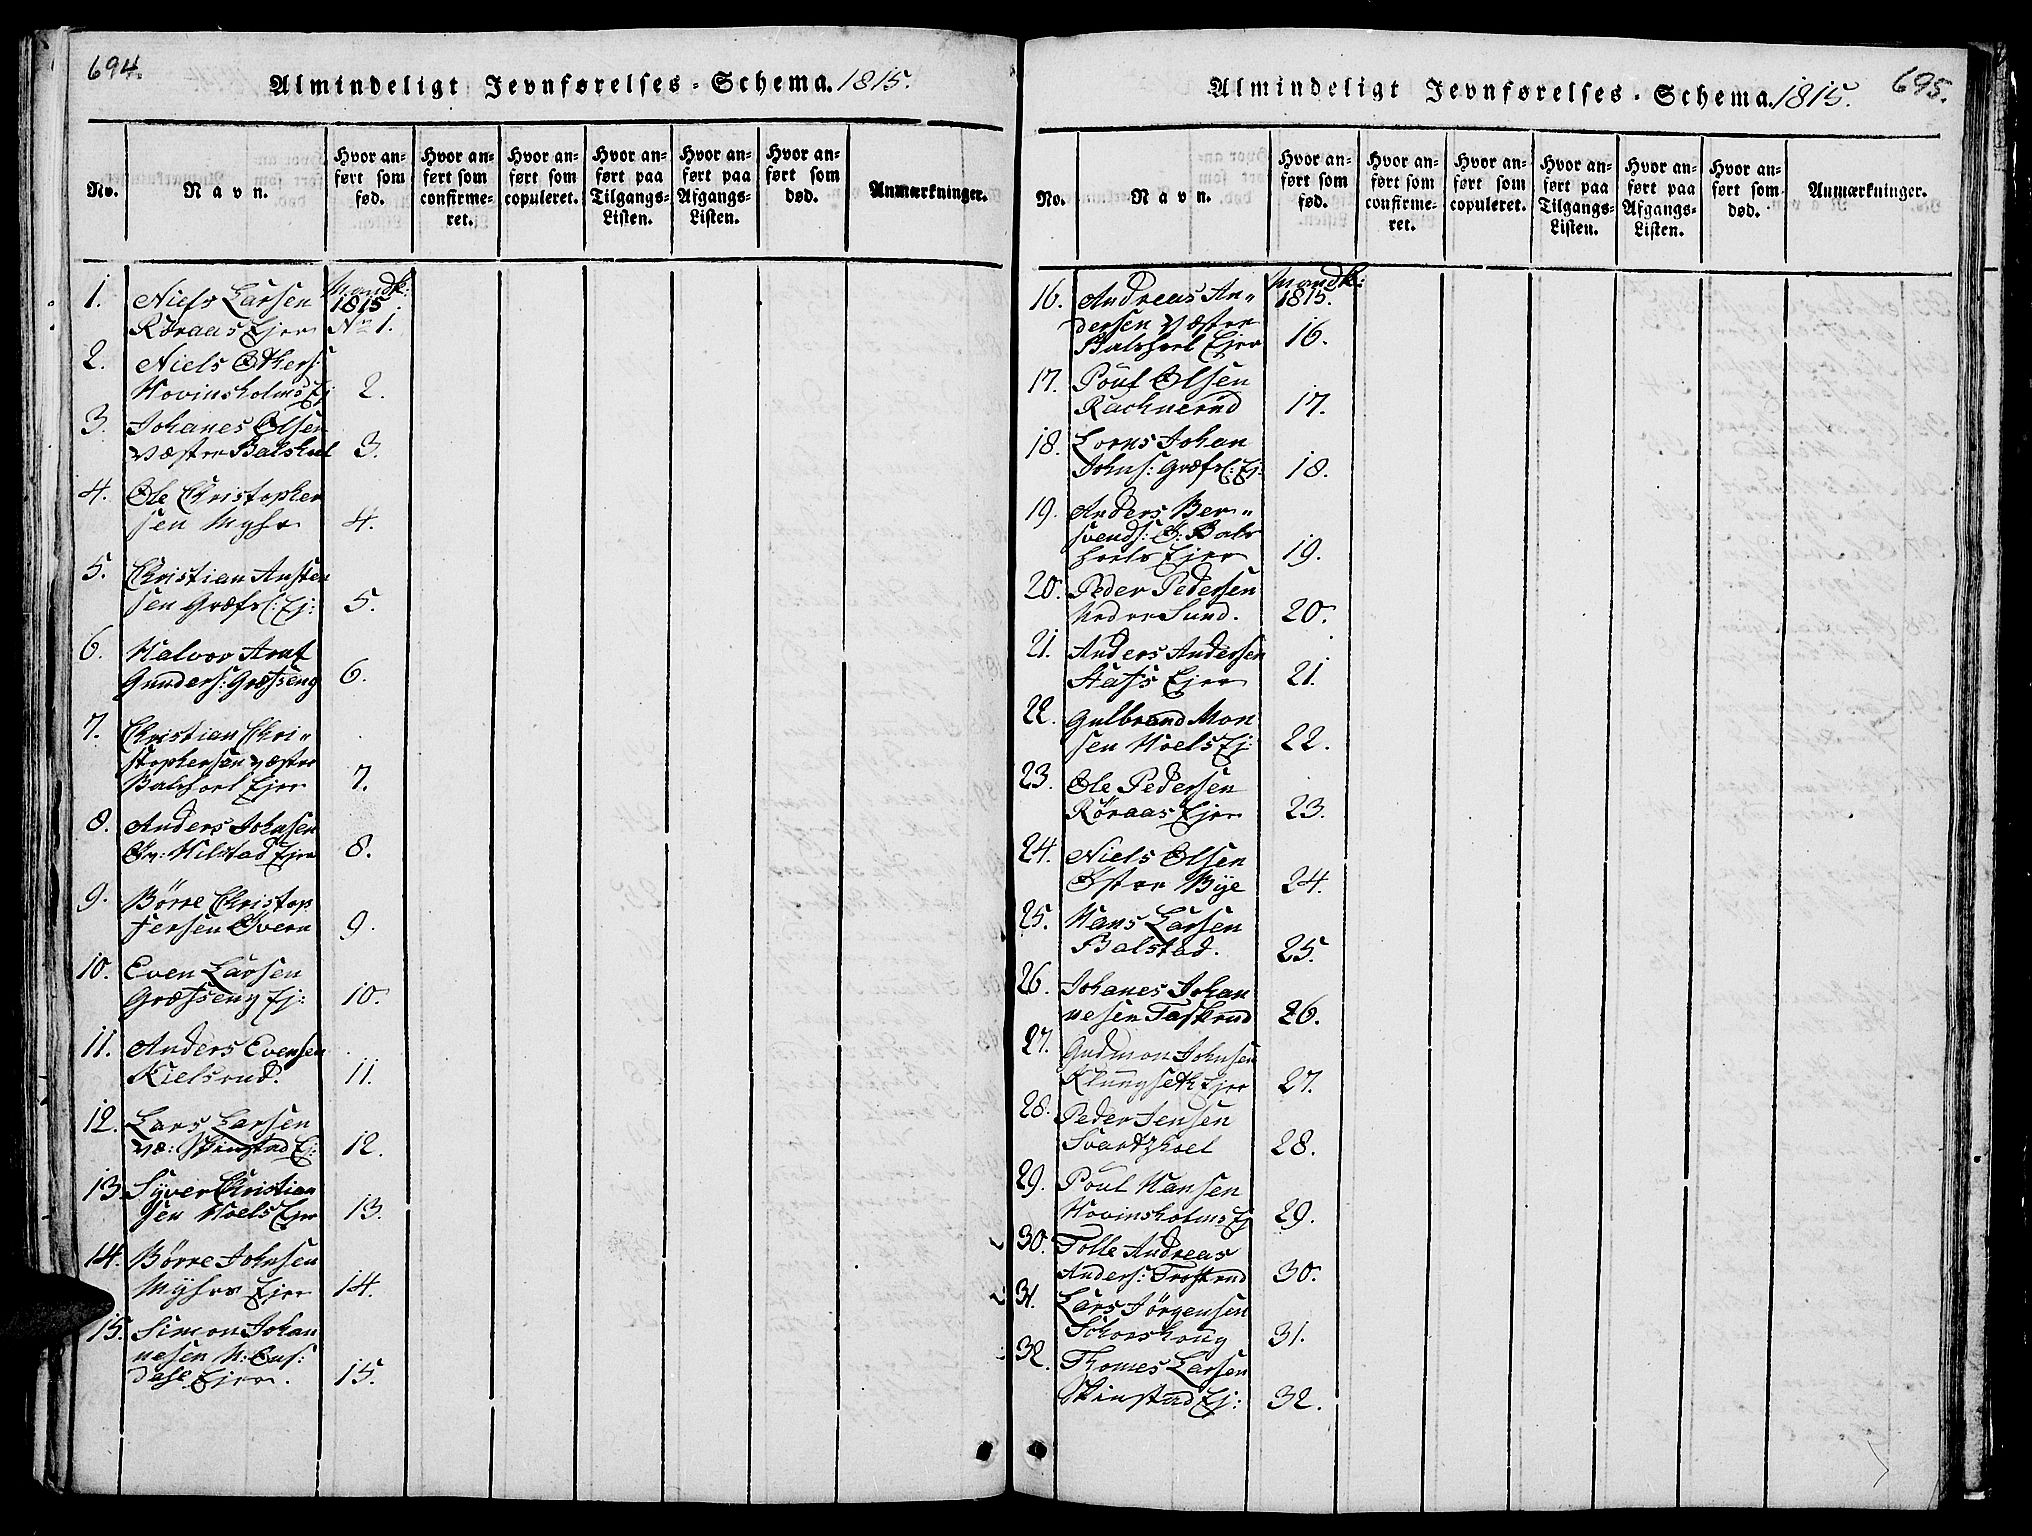 694.
Almindeligt Jevnførelses-Schema. 1815.
No.
Navn.
Hvor anført som fød.
Hvor anført som confirmeret.
Hvor anført som copuleret.
Hvor anført paa Tilgangs-Listen.
Hvor anført paa Afgangs-Listen.
Hvor anført som død.
Anmærkninger.
Mandk:
1. Niels Larsen 1815
Röraas Ejer No 1.
2. Niels Others:
Hovinsholms Ej 2.
3. Johanes Olsen
væstre Balshoel 3.
4. Ole Christopher
sen Myhr 4.
5. Christian Austen
sen Græfs: Ej: 5.
6. Halvor Arnt
Gunders: Græfseng 6.
7. Christian Chri„
stophersen væstre
Balshoel Ejer 7.
8. Anders Johnsen
Hilstad Ejer 8.
9. Börre Christop
fersen Övern 9.
10. Even Larsen
Græfseng Ej: 10.
11. Anders Evensen
Kielsrud. 11.
12. Lars Larsen
væ: Skinstad Ej: 12.
13. Syver Christian
sen Hoels Ejer 13.
14. Börre Johnsen
Myhrs Ejer 14.
15. Simon Johan
nesen N:
dahl Ejer. 15.
695.
Almindeligt Jevnførelses-Schema. 1815.
No.
Navn.
Hvor anført som fød.
Hvor anført som confirmeret.
Hvor anført som copuleret.
Hvor anført paa Tilgangs-Listen.
Hvor anført paa Afgangs-Listen.
Hvor anført som død.
Anmærkninger.
Mandk:
16. Andreas An„ 1815.
dersen væstre
Balshoel Ejer 16.
17. Poul Olsen
Rachnerud 17.
18. Lorns Johan
Johns: Græfs: Ej: 18.
19. Anders Ber„
svends: Ö: Bals
hoels Ejer 19.
20. Peder Pedersen
Nedre Sund. 20.
21. Anders Andersen
Stafs Ejer 21.
22. Gulbrand Mon
sen Hoels Ej: 22.
23. Ole Pedersen
Röraas Ejer 23.
24. Niels Olsen
Östre Bye 24.
25. Hans Larsen
Balstad. 25.
26. Johanes Johan
nesen Taskrud 26.
27. Gudmon Johnsen
Klungseth Ejer 27.
28. Peder Jensen
Svartzhoel 28.
29. Poul Hansen
Hovinsholms Ej 29.
30. Tolle Andreas
Anders: Troskrud 30.
31. Lars Jörgensen
Schorshoug 31.
32. Thomes Larsen
Skinstad Ej: 32.